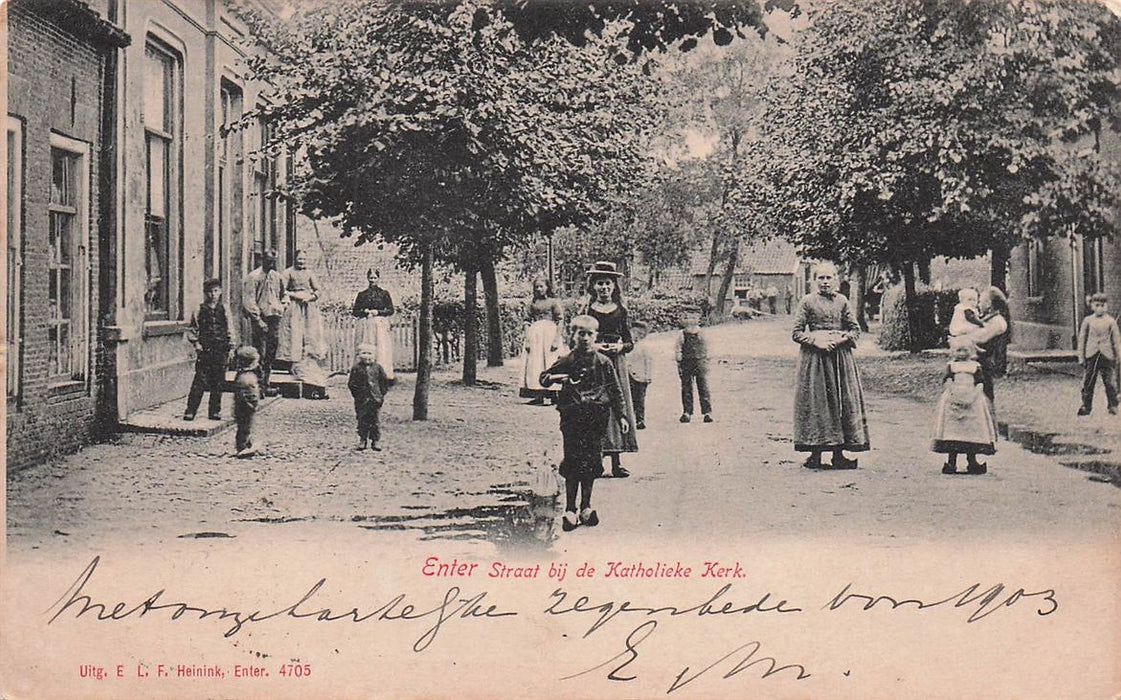 Enter Straat bij de Katholieke Kerk.
Met onze hartelijke zegenbede voor 1903
Uitg. E L. F. Heinink, Enter. 4705